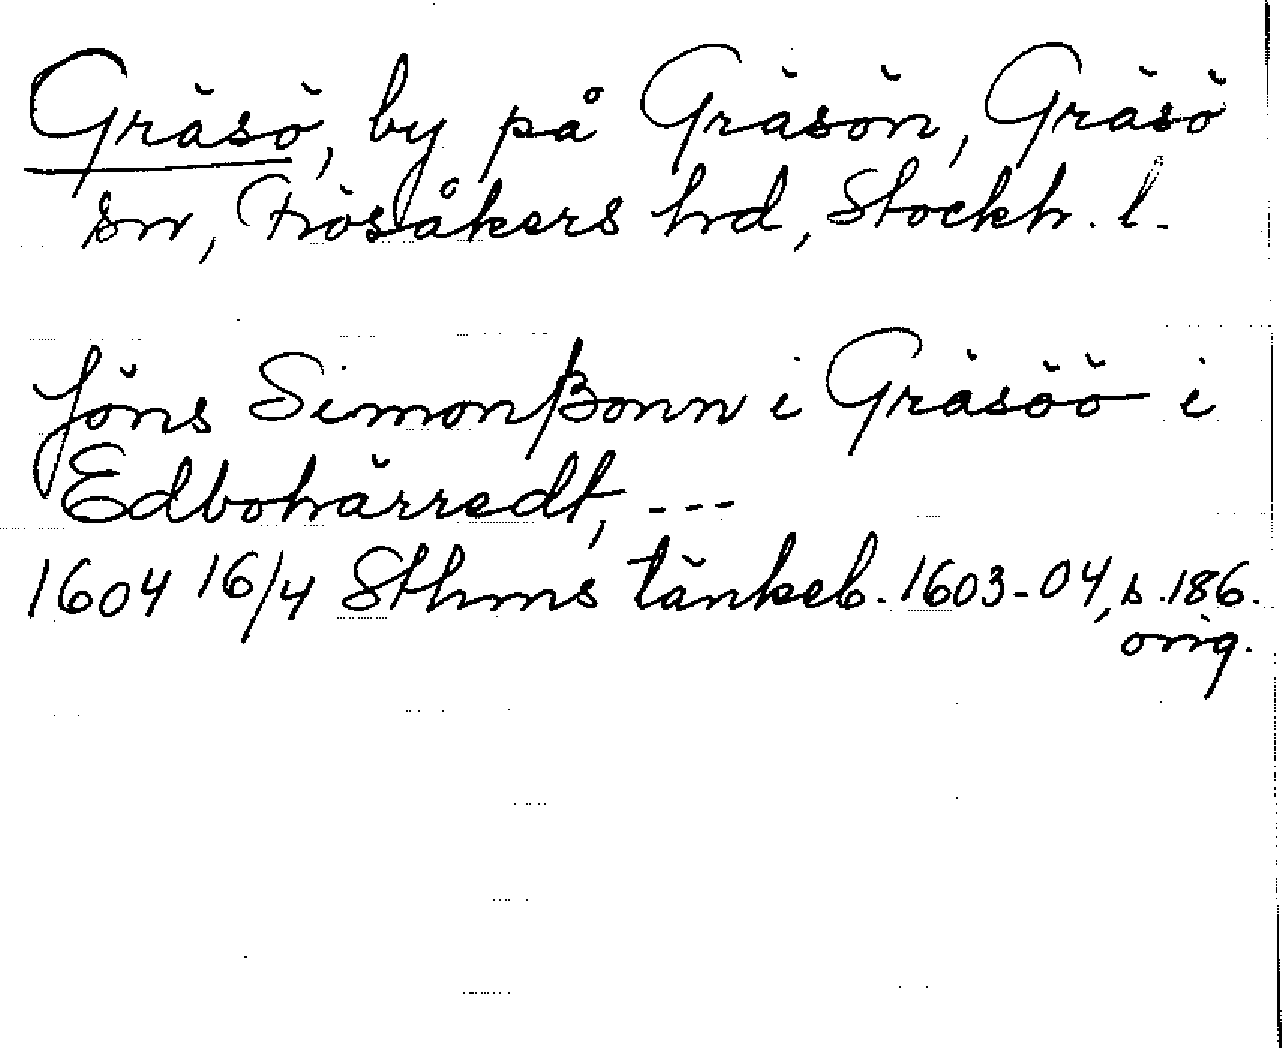 Gräsö, by på Gräsön, Gräsö
sn, Frösåkers hrd, Stockh. l.
Jöns Simonßonn i Gräsöö i
Edbohärredt, ---
1604 16/4 Sthms tänkeb. 1603-04, s. 186.
orig.